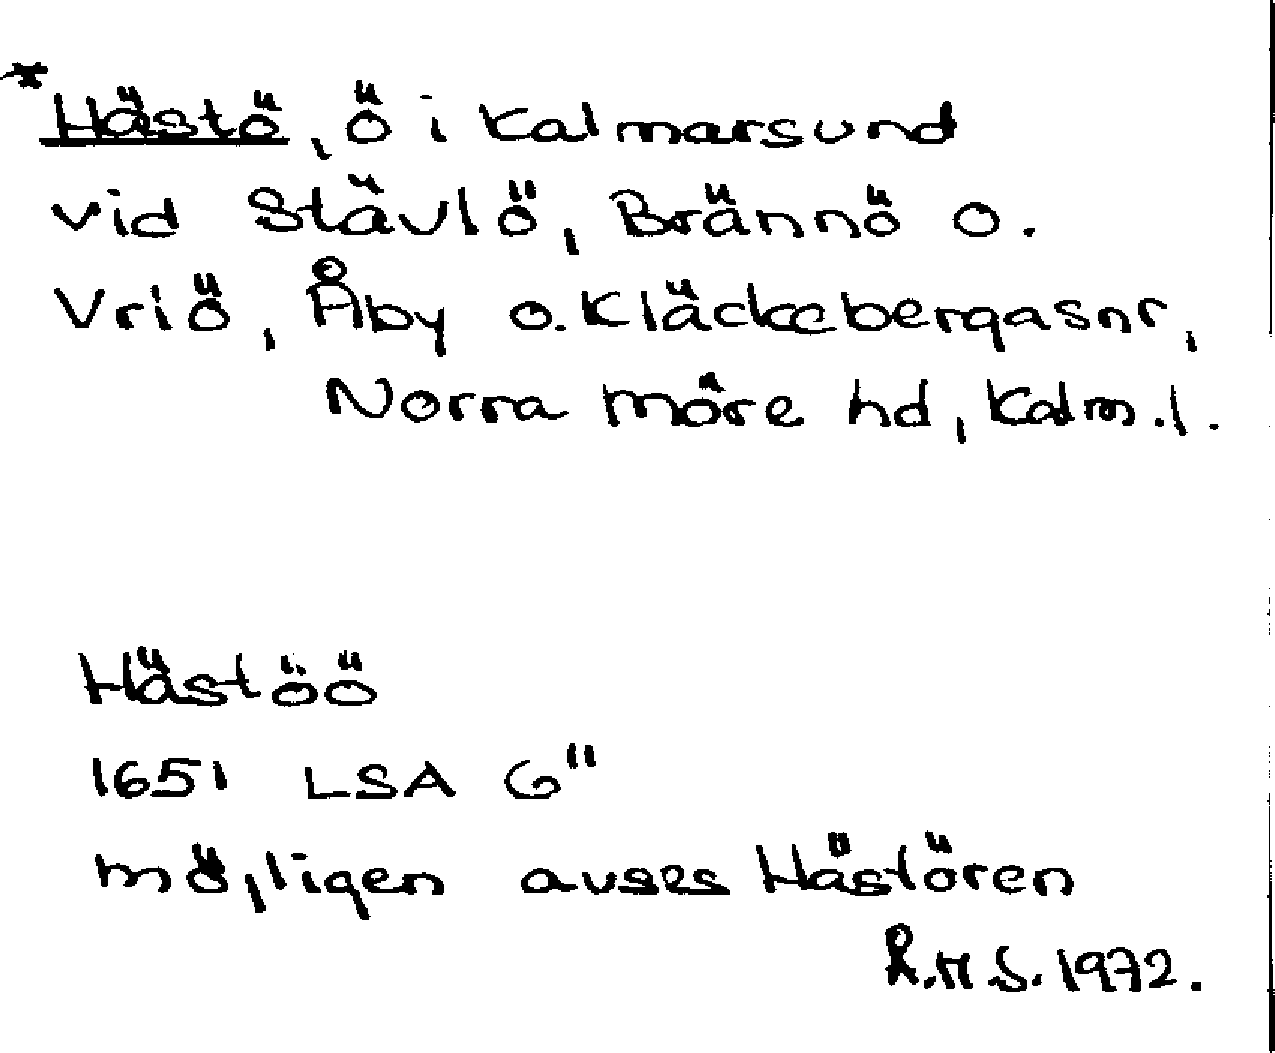 *Hästö, ö i Kalmarsund
vid Stävlö, Brännö o.
Vriö, Åby o. Kläckebergasnr,
Norra Möre hd, Kalm.l.
Hästöö
1651 LSA G"
möjligen avses Hästören
R.M.S. 1972.